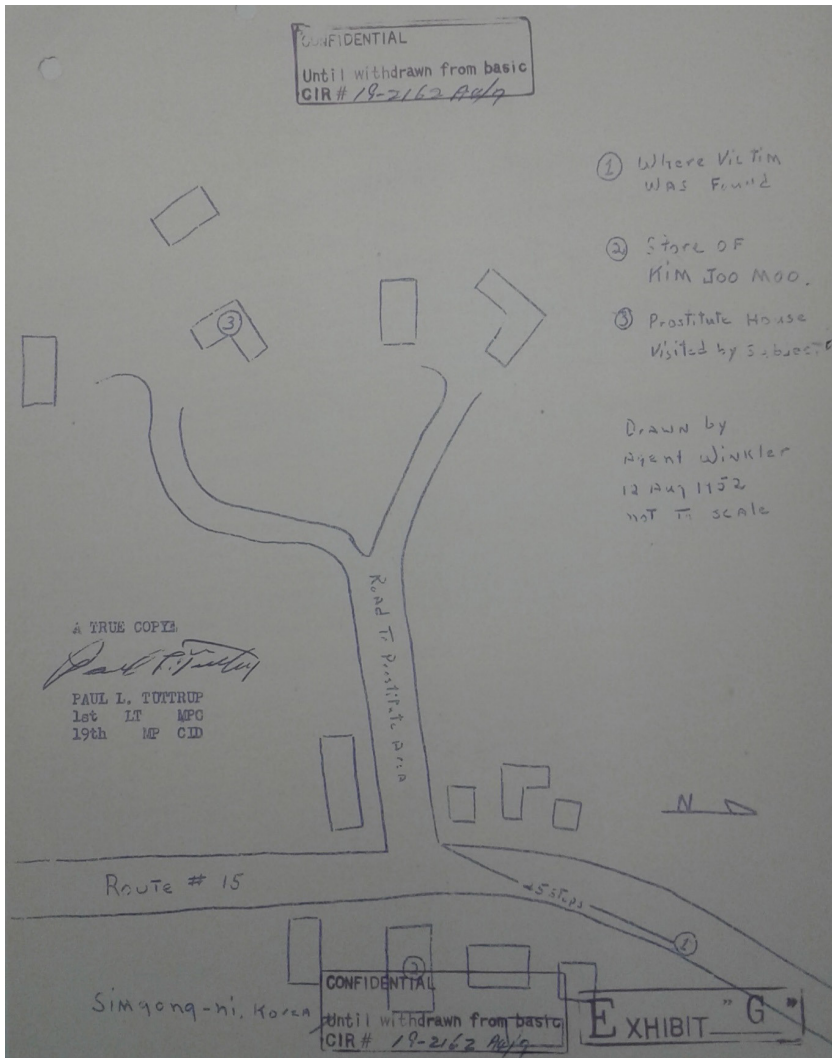 CONFIDENTIAL
Until withdrawn from basic
CIR # 19-2162
① Where Victim
Was Found
② Store OF
Kim Joo Moo.
③ Prostitute House
Visited by Subject
Drawn by
Agent Winkler
12 Aug 1952
not To scale
③
Road To Prostitute Area
A TRUE COPY
PAUL L. TUTTRUP
1st LT MPC
19th MP CID
N
Route # 15
45 steps
①
②
Simgong-ni, Korea
CONFIDENTIAL
Until withdrawn from basic
CIR # 19-2162
EXHIBIT "G"